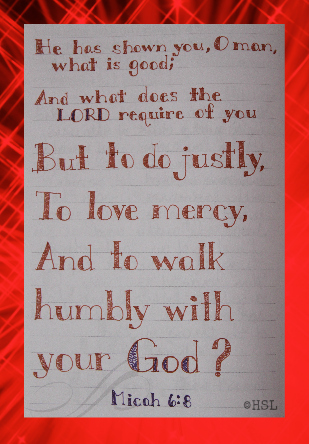 He has shown you, O man,
what is good;
And what does the
LORD require of you
But to do justly,
To love mercy,
And to walk
humbly with
your God?
Micah 6:8
©HSL